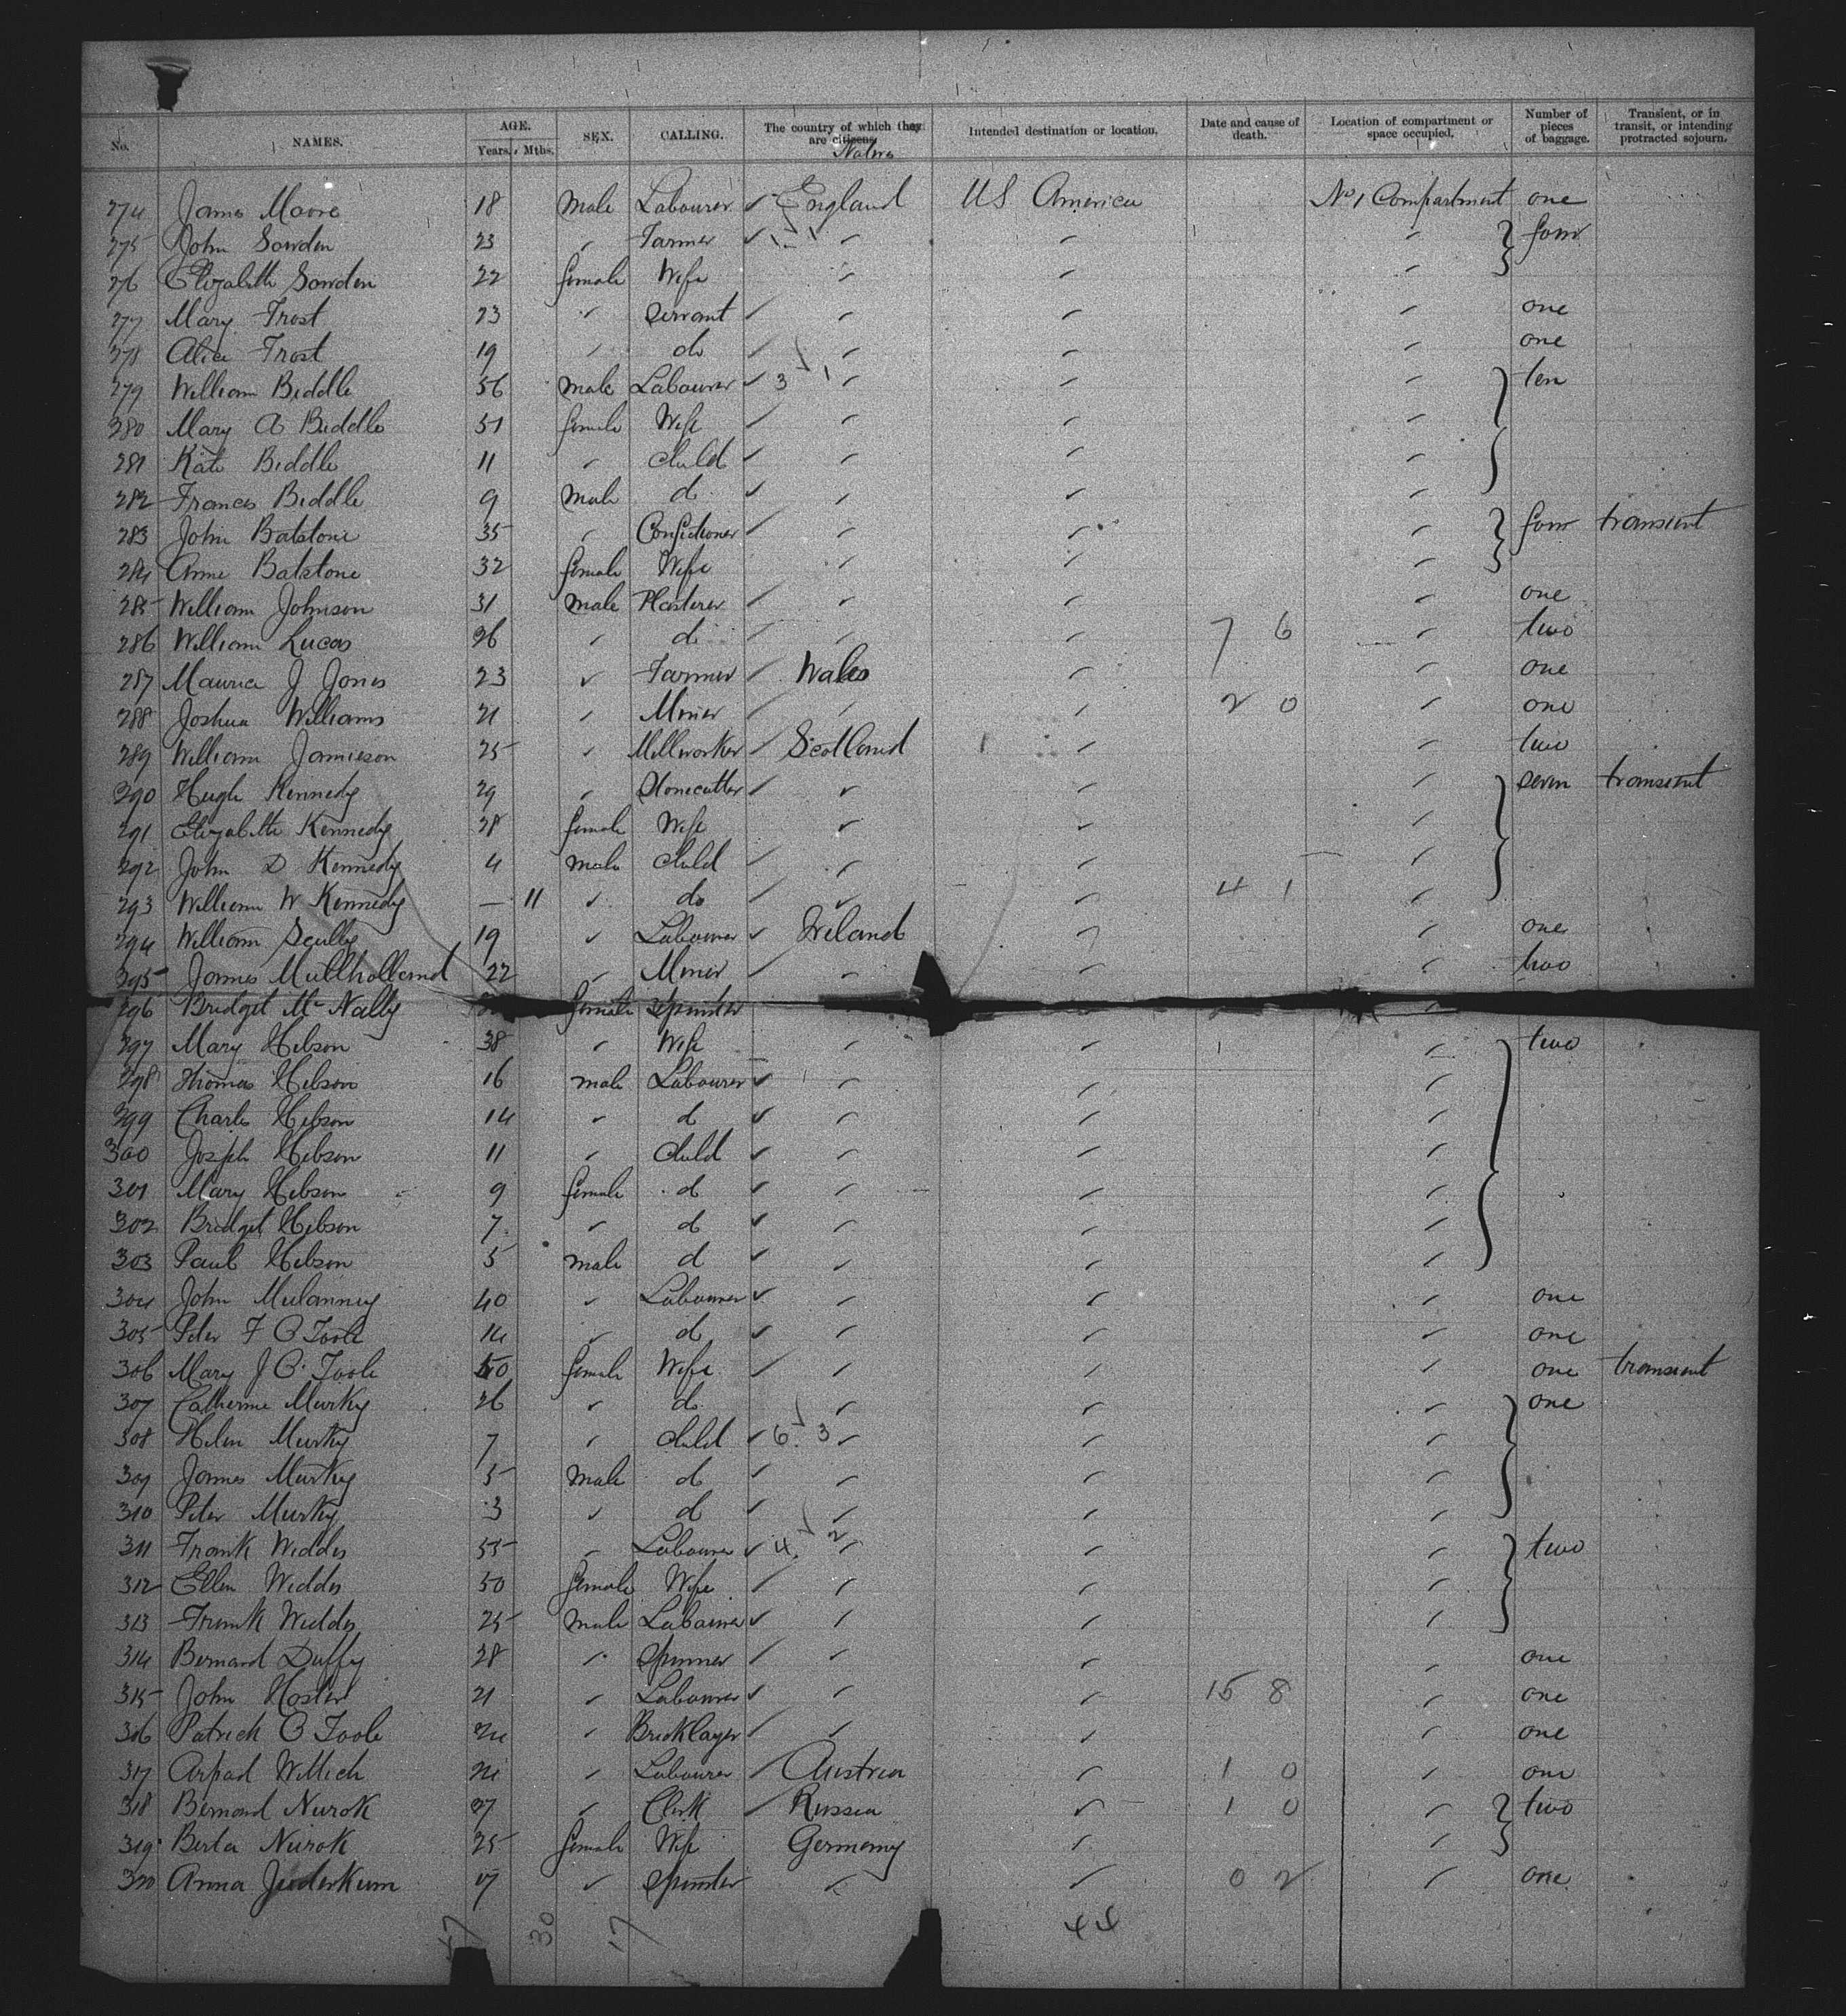 No. NAMES. AGE. Years. Mths. SEX. CALLING. The country of which they are citizens. Intended destination or location. Date and cause of death. Location of compartment or space occupied. Number of pieces of baggage. Transient, or in transit, or intending protracted sojourn.
274 James Moore 18 Male Labourer ✓ England US America No 1 Compartment one
275 John Sowden 23 〃 Farmer ✓ 1 1 〃 〃 〃 four
276 Elizabeth Sowden 22 female Wife 〃 〃 〃
277 Mary Frost 23 〃 Servant ✓ 〃 〃 〃 one
278 Alice Frost 19 〃 do ✓ 〃 〃 〃 one
279 William Biddle 56 male Labourer ✓ 3 1 〃 〃 〃 ten
280 Mary A Biddle 51 female Wife ✓ 〃 〃 〃
281 Kate Biddle 11 〃 child ✓ 〃 〃 〃
282 Frances Biddle 9 male do ✓ 〃 〃 〃
283 John Batstone 35 〃 Confectioner ✓ 〃 〃 〃 four transient
284 Anne Batstone 32 female Wife 〃 〃 〃
285 William Johnson 31 male Plasterer ✓ 〃 〃 〃 one
286 William Lucas 26 〃 do ✓ 〃 〃 7 6 〃 two
287 Maurice J Jones 23 〃 Farmer ✓ Wales 〃 〃 one
288 Joshua Williams 21 〃 Miner ✓ 〃 〃 2 0 〃 one
289 William Jamieson 25 〃 Millworker ✓ Scotland 〃 〃 two
290 Hugh Kennedy 29 〃 Stonecutter ✓ 〃 〃 〃 seven transient
291 Elizabeth Kennedy 28 female Wife 〃 〃 〃
292 John D Kennedy 4 male child ✓ 〃 〃 〃
293 William W Kennedy — 11 〃 do ✓ 〃 〃 4 1 〃
294 William Scully 19 〃 Labourer ✓ Ireland 〃 〃 one
295 James Mullholland 22 〃 Miner ✓ 〃 〃 〃 two
296 Bridget McNally female Spinster 〃
297 Mary Hebson 38 〃 Wife 〃 〃 〃 two
298 Thomas Hebson 16 male Labourer ✓ 〃 〃 〃
299 Charles Hebson 14 〃 do ✓ 〃 〃 〃
300 Joseph Hebson 11 〃 child ✓ 〃 〃 〃
301 Mary Hebson 9 female do ✓ 〃 〃 〃
302 Bridget Hebson 7 〃 do ✓ 〃 〃 〃
303 Paul Hebson 5 male do ✓ 〃 〃 〃
304 John Mulanney 40 〃 Labourer ✓ 〃 〃 〃 one
305 Peter F O Toole 14 〃 do ✓ 〃 〃 〃 one
306 Mary J O'Toole 50 female Wife ✓ 〃 〃 〃 one transient
307 Catherine Murthy 26 〃 do 〃 〃 〃 one
308 Helen Murthy 7 〃 child ✓ 6 3 〃 〃 〃
309 James Murthy 5 male do ✓ 〃 〃 〃
310 Peter Murthy 3 〃 do ✓ 〃 〃 〃
311 Frank Weddes 55 〃 Labourer ✓ 4 2 〃 〃 〃 two
312 Ellen Weddes 50 female Wife ✓ 〃 〃 〃
313 Frank Weddes 25 male Labourer ✓ 〃 〃 〃
314 Bernard Duffy 28 〃 Spinner ✓ 〃 〃 〃 one
315 John Hosler 21 〃 Labourer ✓ 〃 〃 15 8 〃 one
316 Patrick O Toole 24 〃 Bricklayer ✓ 〃 〃 〃 one
317 Arpad Willich 21 〃 Labourer ✓ Austria 〃 1 0 〃 one
318 Bernard Nurok 27 〃 Clerk ✓ Russia 〃 1 0 〃 two
319 Berta Nurok 25 female Wife Germany 〃 〃
320 Anna Juderkum 17 〃 Spinster 〃 〃 0 2 〃 one
47 30 17 44